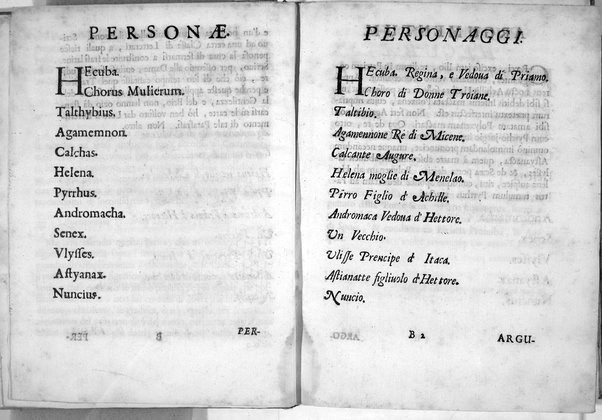 PERSONÆ.
HEcuba.
Chorus Mulierum.
Talthybius.
Agamemnon.
Calchas.
Helena.
Pyrrhus.
Andromacha.
Senex.
Vlysses.
Astyanax.
Nuncius.
B
PER-
PERSONAGGI.
HEcuba. Regina, e Vedoua di Priamo.
Choro di Donne Troiane.
Taltibio.
Agamennone Rè di Micene.
Calcante Augure.
Helena moglie di Menelao.
Pirro Figlio d Achille.
Andromaca Vedoua d'Hettore.
Un Vecchio.
Ulisse Prencipe d Itaca.
Astianatte figliuolo d'Hettore.
Nuncio.
B 2
ARGU-